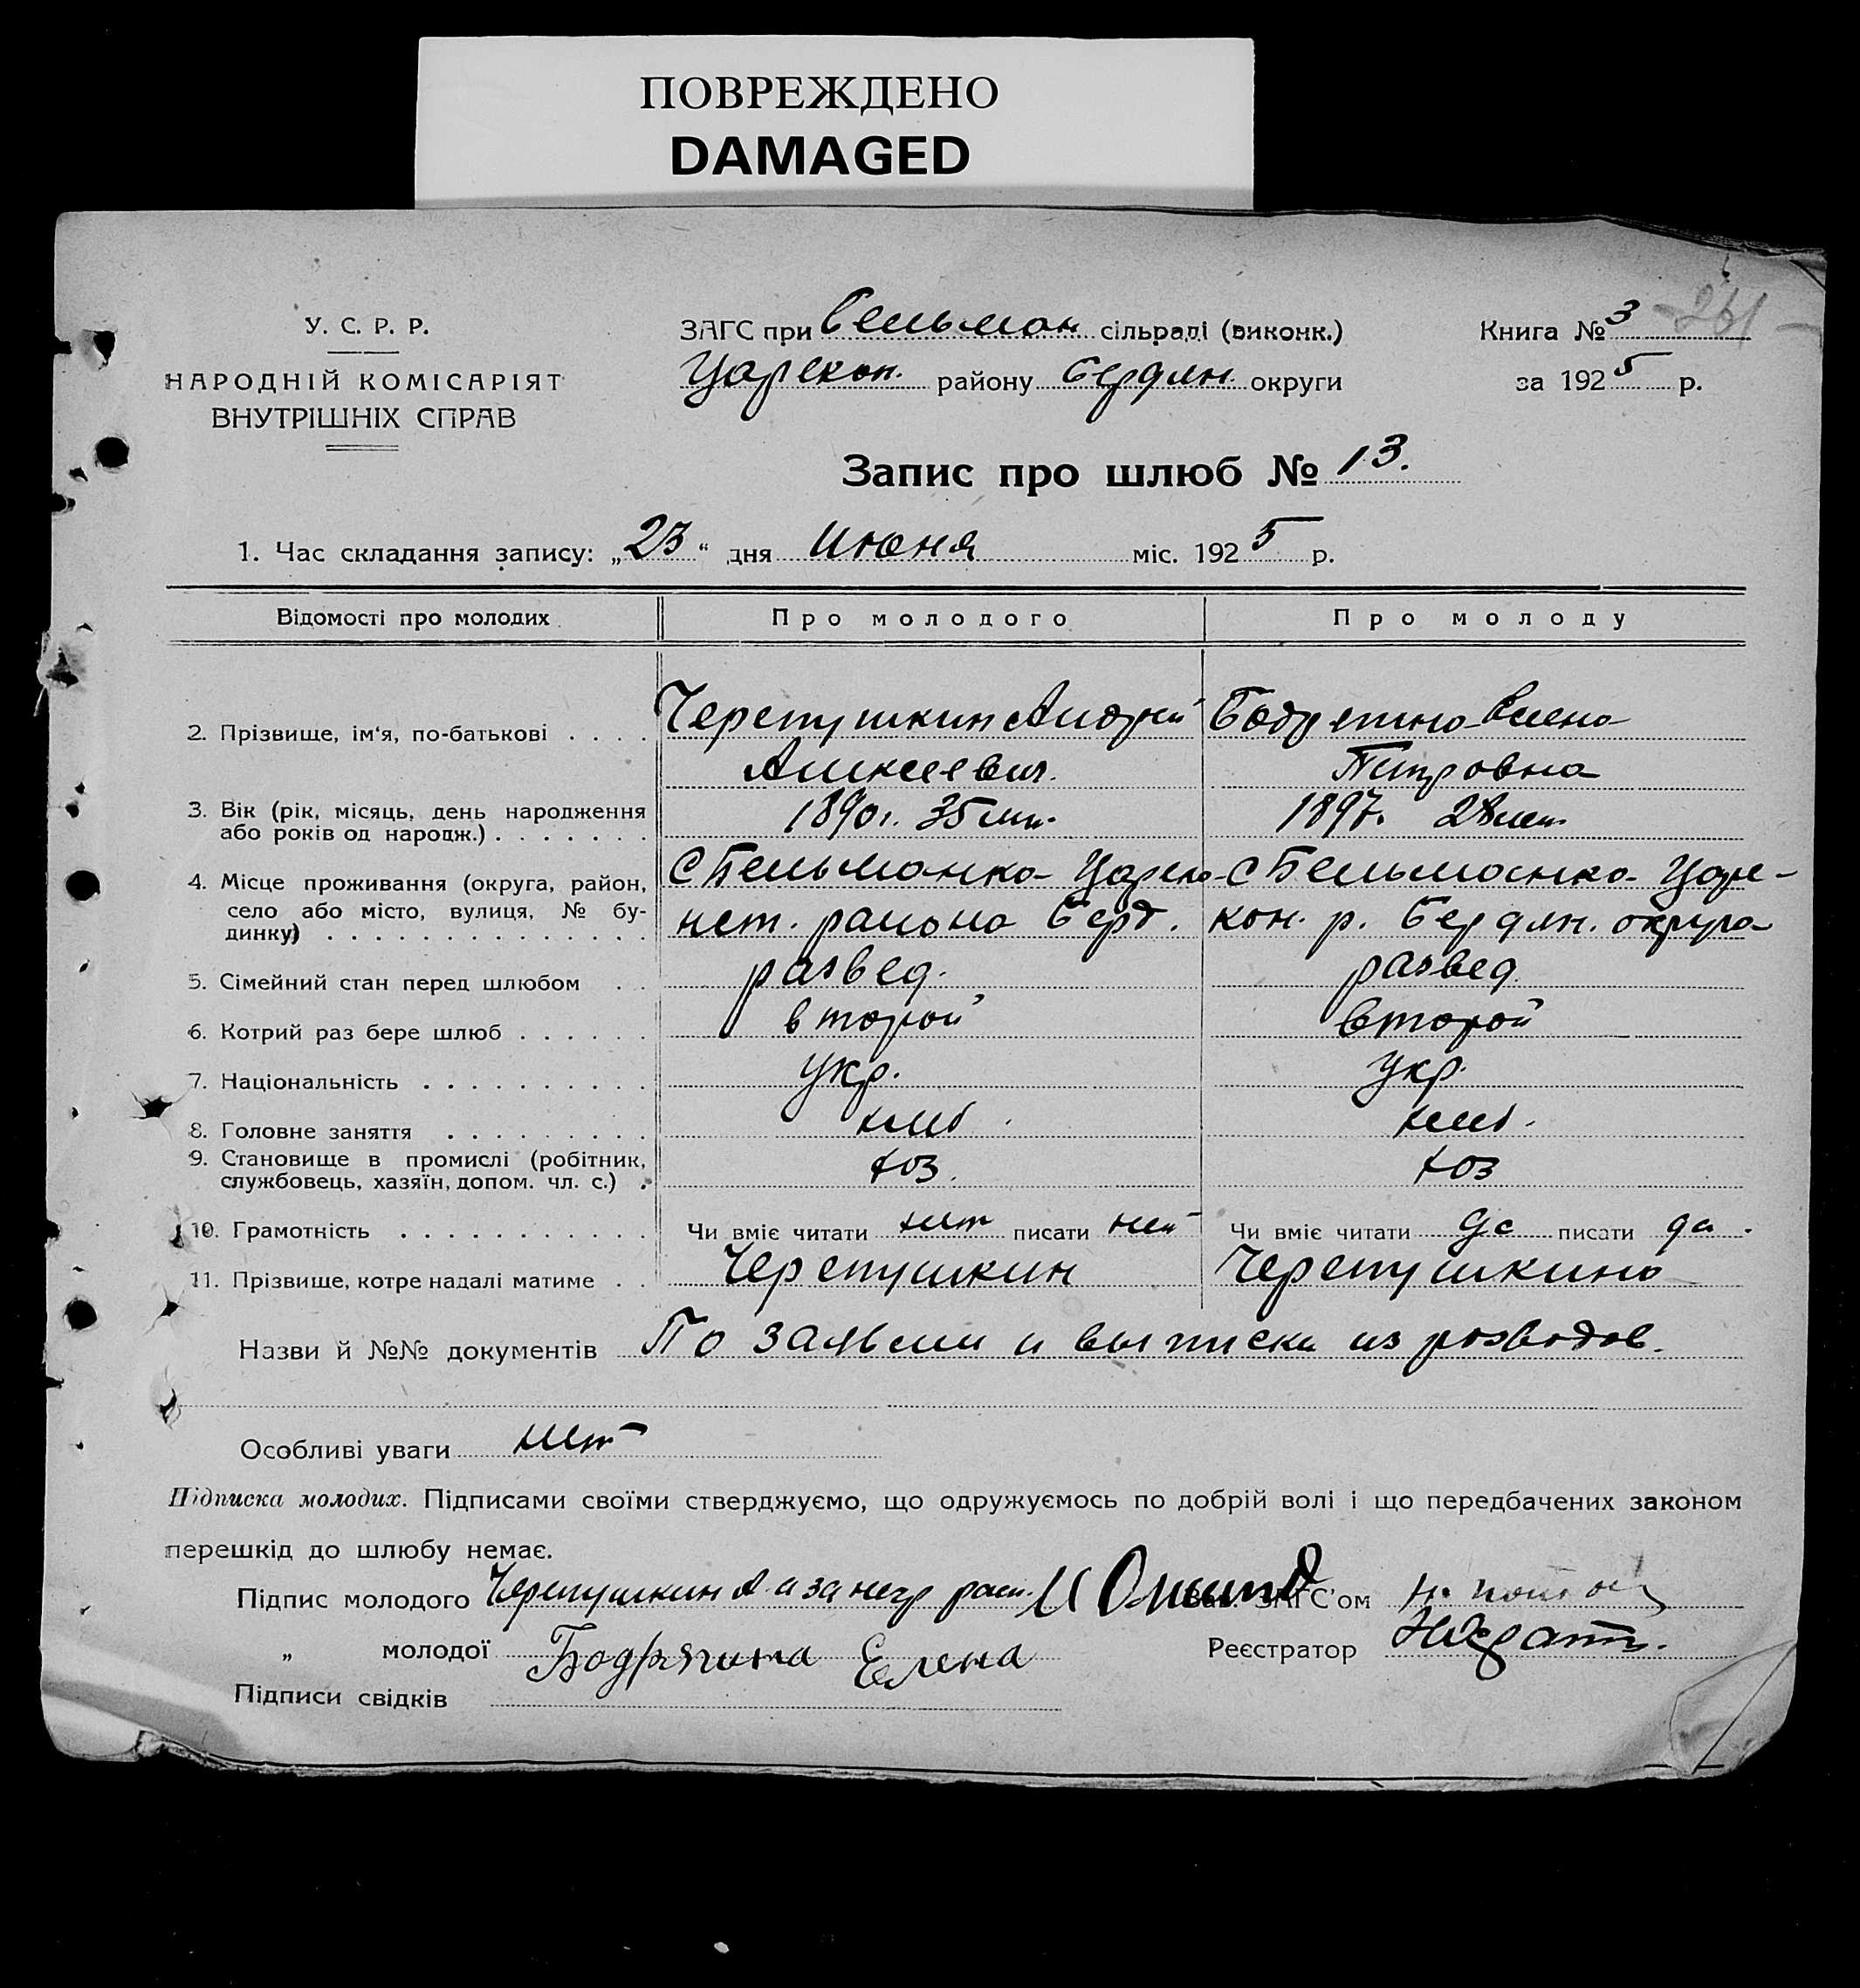 ПОВРЕЖДЕНО
DAMAGED
261
У. С. Р. Р.
НАРОДНІЙ КОМІСАРІЯТ
ВНУТРІШНІХ СПРАВ
ЗАГС при Бельман сільраді (виконк.)
Царекон. району Бердян. округи
Книга № 3
за 1925 р.
Запис про шлюб № 13.
1. Час складання запису: „23“ дня Июня міс. 1925 р.
Відомості про молодих Про молодого Про молоду
2. Прізвище, ім'я, по-батькові . . . . Черепушкин Андрей Елена
Алексеевич. Петровна
3. Вік (рік, місяць, день народження
або років од народж.) . . . . . . . 1890г. 35 лет. 1897. 28 лет.
4. Місце проживання (округа, район,
село або місто, вулиця, № бу-
динку) . . . . . . . . . . . . . .
С Бельманка Цареко-
нст. района Берд.
С Бельманка Царе-
кон. р. Бердян. округа
5. Сімейний стан перед шлюбом . . развед. развед.
6. Котрий раз бере шлюб . . . . . . второй второй
7. Національність . . . . . . . . . . укр. укр.
8. Головне заняття . . . . . . . . . хлеб . хлеб .
9. Становище в промислі (робітник,
службовець, хазяїн, допом. чл. с.) . хоз. хоз
10. Грамотність . . . . . . . . . . . Чи вміє читати нет писати нет Чи вміє читати да писати да .
11. Прізвище, котре надалі матиме . Черепушкин Черепушкина
Назви й №№ документів По заявлен и выписки из розводов.
Особливі уваги нет
Підписка молодих. Підписами своїми стверджуємо, що одружуємось по добрій волі і що передбачених законом
перешкід до шлюбу немає.
Підпис молодого Черепушкин А. а за негр расп. Зав. ЗАГС'ом
„ молодої Бодрягина Елена Реєстратор
Підписи свідків